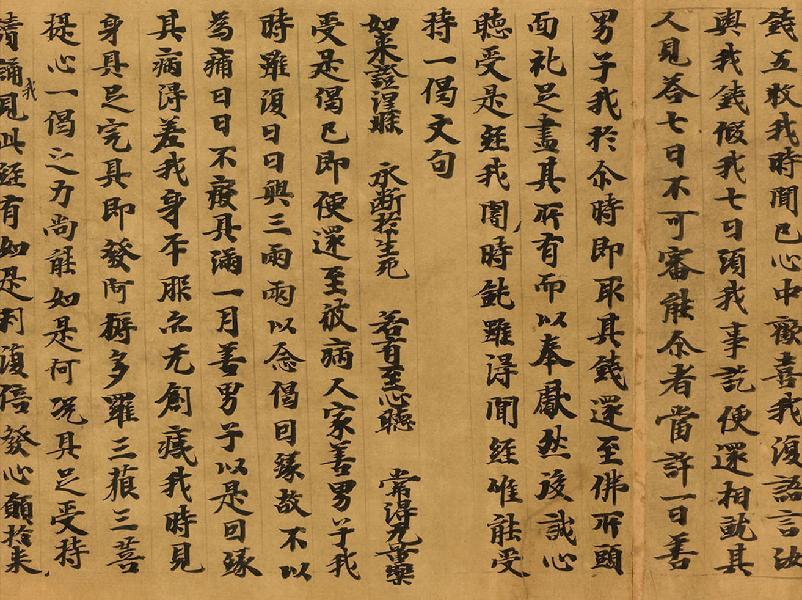 錢五枚我時聞已心中歡喜我復語言汝
與我錢假我七日須我事訖便還相就其
人見荅七日不可審能尒者當許一日善
男子我於尒時即取其錢還至佛所頭
面礼足盡其所有而以奉獻然後誠心
聽受是經我闇時鈍雖得聞經唯能受
持一偈文句
如來證涅槃 永斷於生死 若有至心聽 常得无量樂
受是偈已即便還至彼病人家善男子我
時雖復日日與三兩兩以念偈因緣故不以
為痛日日不癈具滿一月善男子以是因緣
其病得差我身平服亦无創痍我時見
身具足完具即發阿耨多羅三藐三菩
提心一偈之力尚能如是何況具足受持
讀誦我見此經有如是利復倍發心願於未